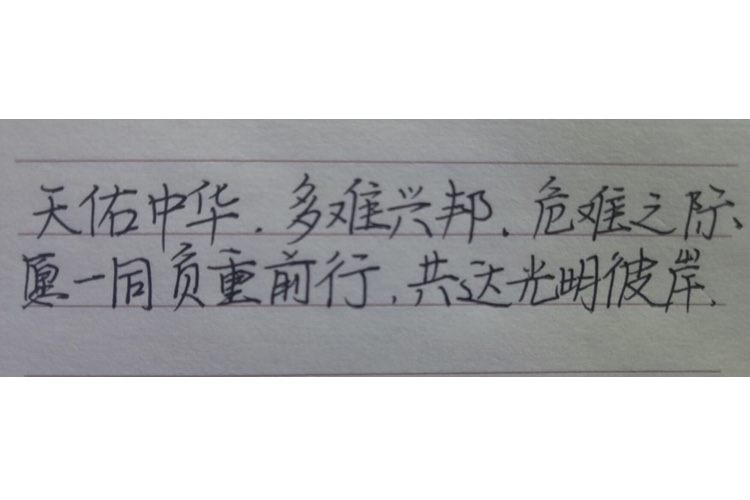 天佑中华.多难兴邦.危难之际、
愿一同负重前行.共达光明彼岸.